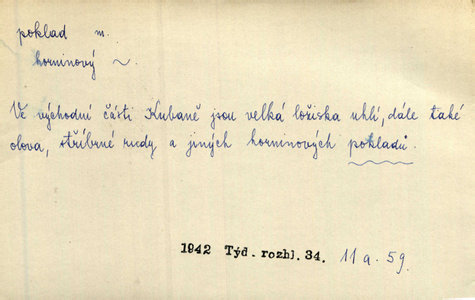 poklad m.
horninový ~.
Ve východní části Kubaně jsou velká ložiska uhlí, dále také
olova, stříbrné rudy a jiných horninových pokladů.
1942 Týd. rozhl. 34. 11a. 59.